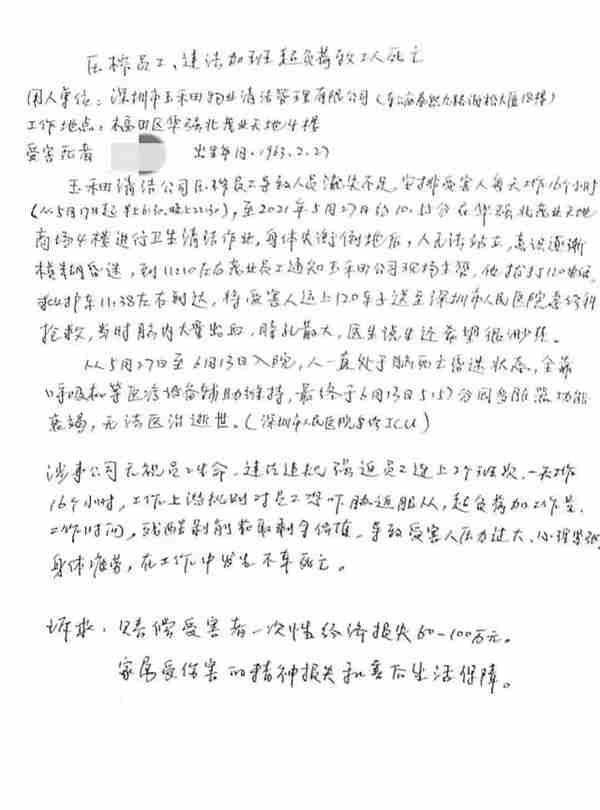 压榨员工、违法加班超负荷致工人死亡
用人单位：深圳市玉禾田物业清洁管理有限公司（
工作地点：福田区华强北茂业天地4楼
受害死者 出生年月：1963.2.27
玉禾田清洁公司压榨员工导致人员流失不足，安排受害人每天工作16个小时
（从5月17日起 早上6:30，晚上22:30），至2021年5月27日约10:55分在华强北茂业天地
商场4楼进行卫生清洁作业，身体失衡倒地后，人无法站立，意识逐渐
模糊昏迷，到11:10左右茂业员工通知玉禾田公司现场主管，他拨打120电话，
救护车11:38左右到达，将受害人送上120车子送至深圳市人民医院急诊科
抢救，当时脑内大量出血，瞳孔散大，医生说生还希望很渺茫。
从5月27日至6月13日入院，人一直处于脑死亡昏迷状态，全靠
呼吸机等医疗设备辅助维持，最终于6月13日5:57分因多脏器功能
衰竭，无法医治逝世。（深圳市人民医院 ICU）
涉事公司无视员工生命，违法违规强迫员工连上2个班次，一天工作
16个小时，工作上潜规则对员工恐吓胁迫服从，超负荷加工作量、
工作时间，残酷剥削榨取剩余价值，导致受害人压力过大、心理紧张
身体疲劳，在工作中发生不幸死亡。
诉求：赔偿受害者一次性经济损失60-100万元。
家属受伤害的精神损失和善后生活保障。